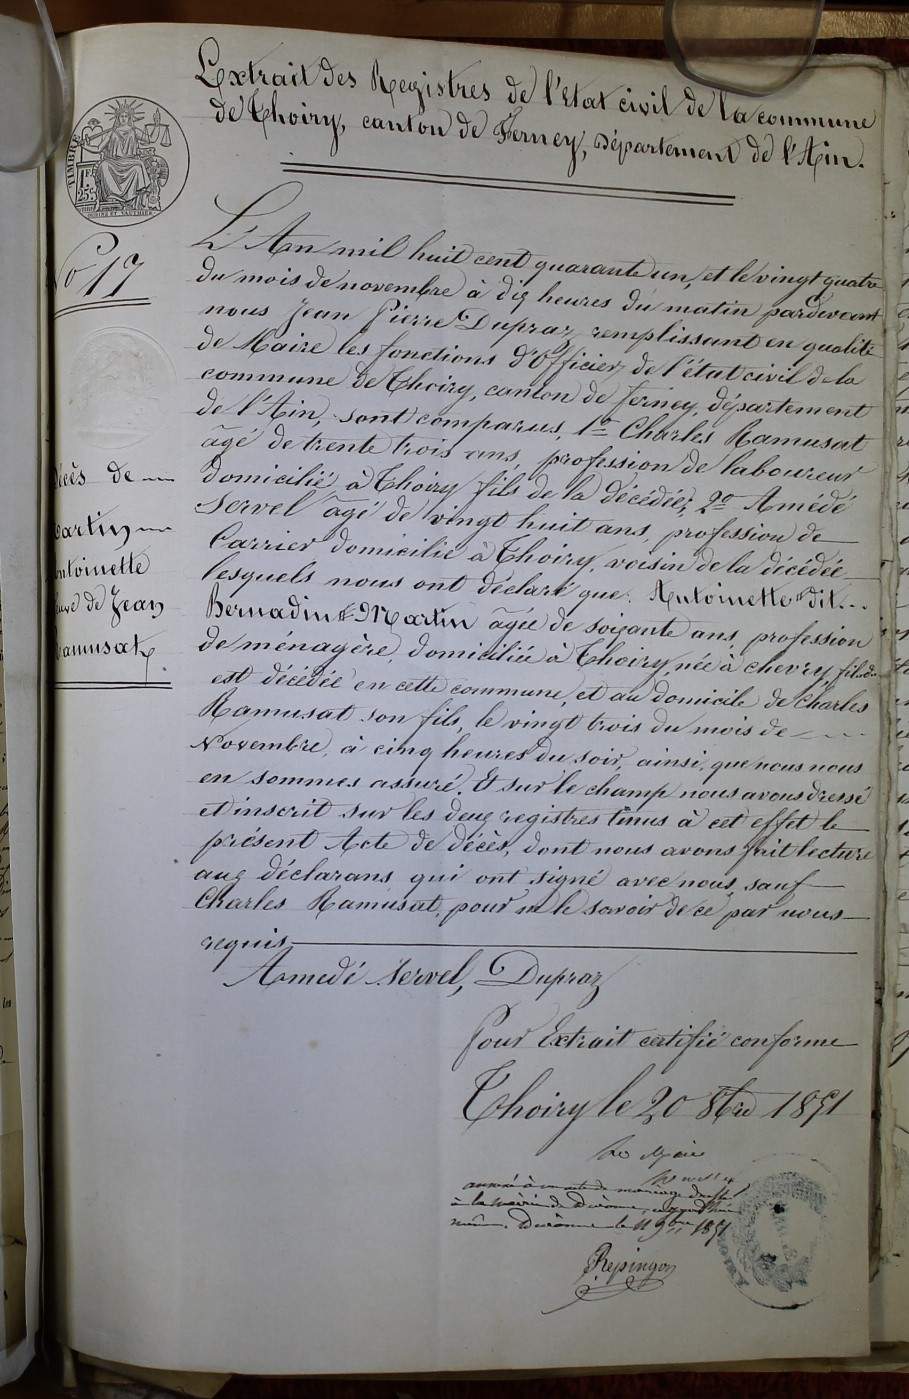 Extrait des Registres de l'Etat civil de la commune
de Thoiry, canton de Ferney, Département de l'Ain.
TIMBRE
1F.
25c.
No 17
L'An mil huit cent quarante un, et le vingt quatre
du mois de novembre à dix heures du matin pardevant
nous Jean Pierre Dupraz remplissant en qualité
de Maire les fonctions d'Officier de l'état civil de la
commune de Thoiry, canton de Ferney, département
de l'Ain, sont comparus, 1o Charles Ramusat
âgé de trente trois ans, profession de laboureur
domicilié à Thoiry fils de la décédée, 2o Amédé
Servel âgé de vingt huit ans, profession de
Carrier domicilié à Thoiry, voisin de la décédée
lesquels nous ont déclaré que Antoinette dit
Bernadine Martin âgée de soixante ans, profession
de ménagère, domiciliée à Thoiry, née à chevry, fille de
est décédée en cette commune, et au domicile de Charles
Ramusat son fils, le vingt trois du mois de
Novembre, à cinq heures du soir, ainsi que nous nous
en sommes assuré. Et sur le champ nous avons dressé
et inscrit sur les deux registres tenus à cet effet le
présent Acte de décès, dont nous avons fait lecture
aux déclarans qui ont signé avec nous, sauf
Charles Ramusat, pour ne le savoir de ce par nous
requis
Amedé Servel, Dupraz
Décès de
Martin
Antoinette
veuve de Jean
Ramusat
Pour Extrait certifié conforme
Thoiry le 20 8bre 1851
Le Maire
annexé à un acte de mariage
à la mairie de Divonne,
Divonne le 11 9bre 1851
Repingon